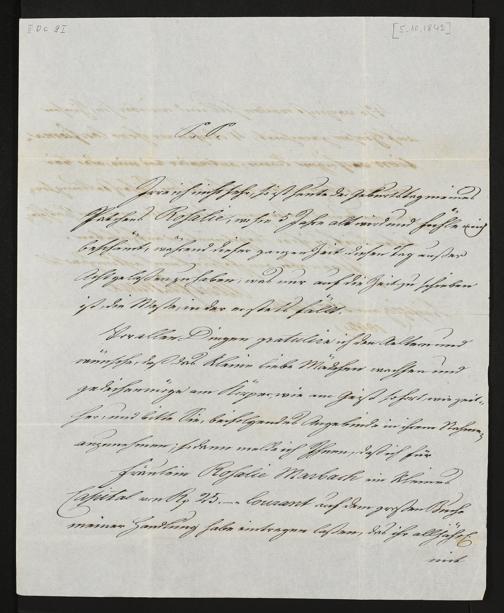 II D c 9 I
[5.10.1842]
P. P.
Irre ich mich nicht, so ist heute der Geburtstag meines
Pathchens Rosalie, wo sie 5 Jahre alt wird und fühle mich
beschämt, während dieser ganzen Zeit diesen Tag außer
Acht gelassen zu haben, was nur auf die Zeit zu schieben
ist, die Messe, in der er stets fällt.
Vor allen Dingen gratulire ich den Aeltern und
wünsche, daß das kleine liebe Mädchen wachsen und
gedeihen möge am Körper, wie am Geist so fort, wie zeit-
her, und bitte Sie, beifolgendes Angebinde in ihrem Namen
anzunehmen; sodann melde ich Ihnen, daß ich für
Fräulein Rosalie Marbach ein kleines
Capital von 25.— Courant auf dem großen Buche
meiner Handlung habe eintragen lassen, das ihr alljährl.
mit